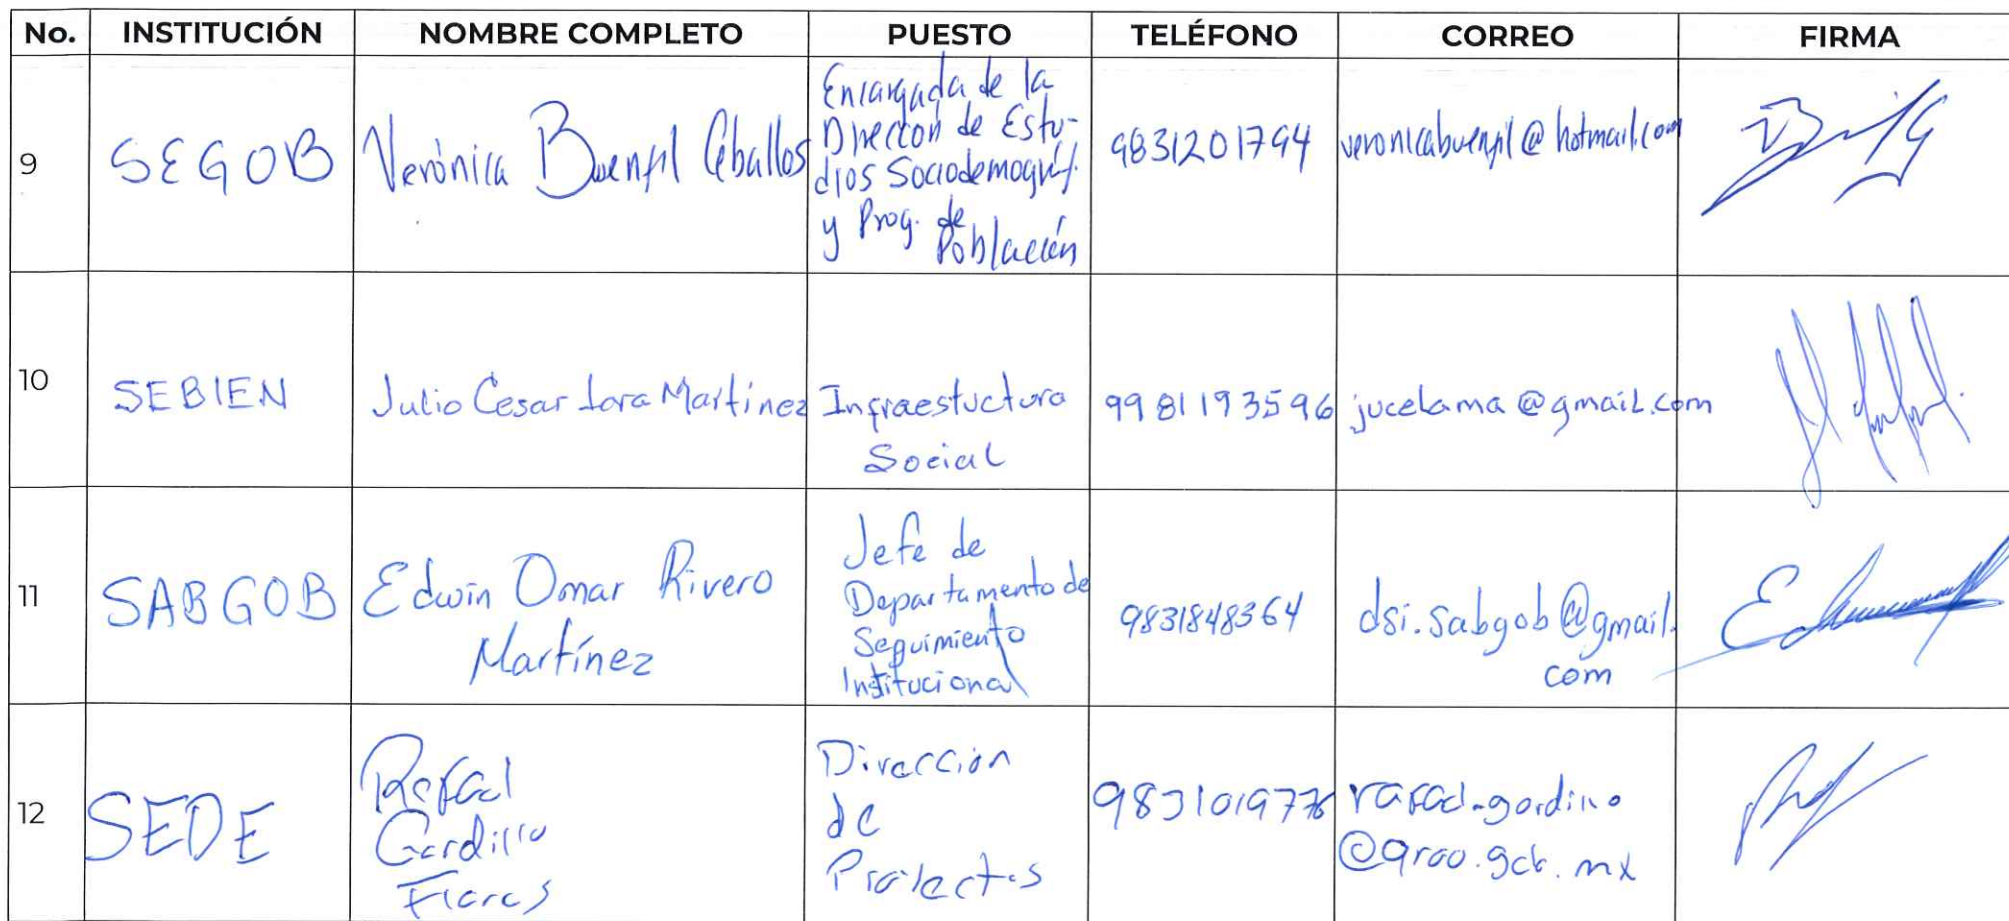 No. INSTITUCIÓN NOMBRE COMPLETO PUESTO TELÉFONO CORREO FIRMA
9 SEGOB Verónica Buenfil Ceballos Encargada de la
Dirección de Estu-
dios Sociodemográf.
y Prog. de
Población 9831201794 veronicabuenfil@hotmail.com
10 SEBIEN Julio Cesar Lara Martinez Infraestuctura
Social 9981193596 jucelama@gmail.com
11 SABGOB Edwin Omar Rivero
Martínez Jefe de
Departamento de
Seguimiento
Institucional 9831848364 dsi.sabgob@gmail.
com
12 SEDE Rafael
Gordillo
Flores Dirección
de
Proyectos
@qroo.gob.mx